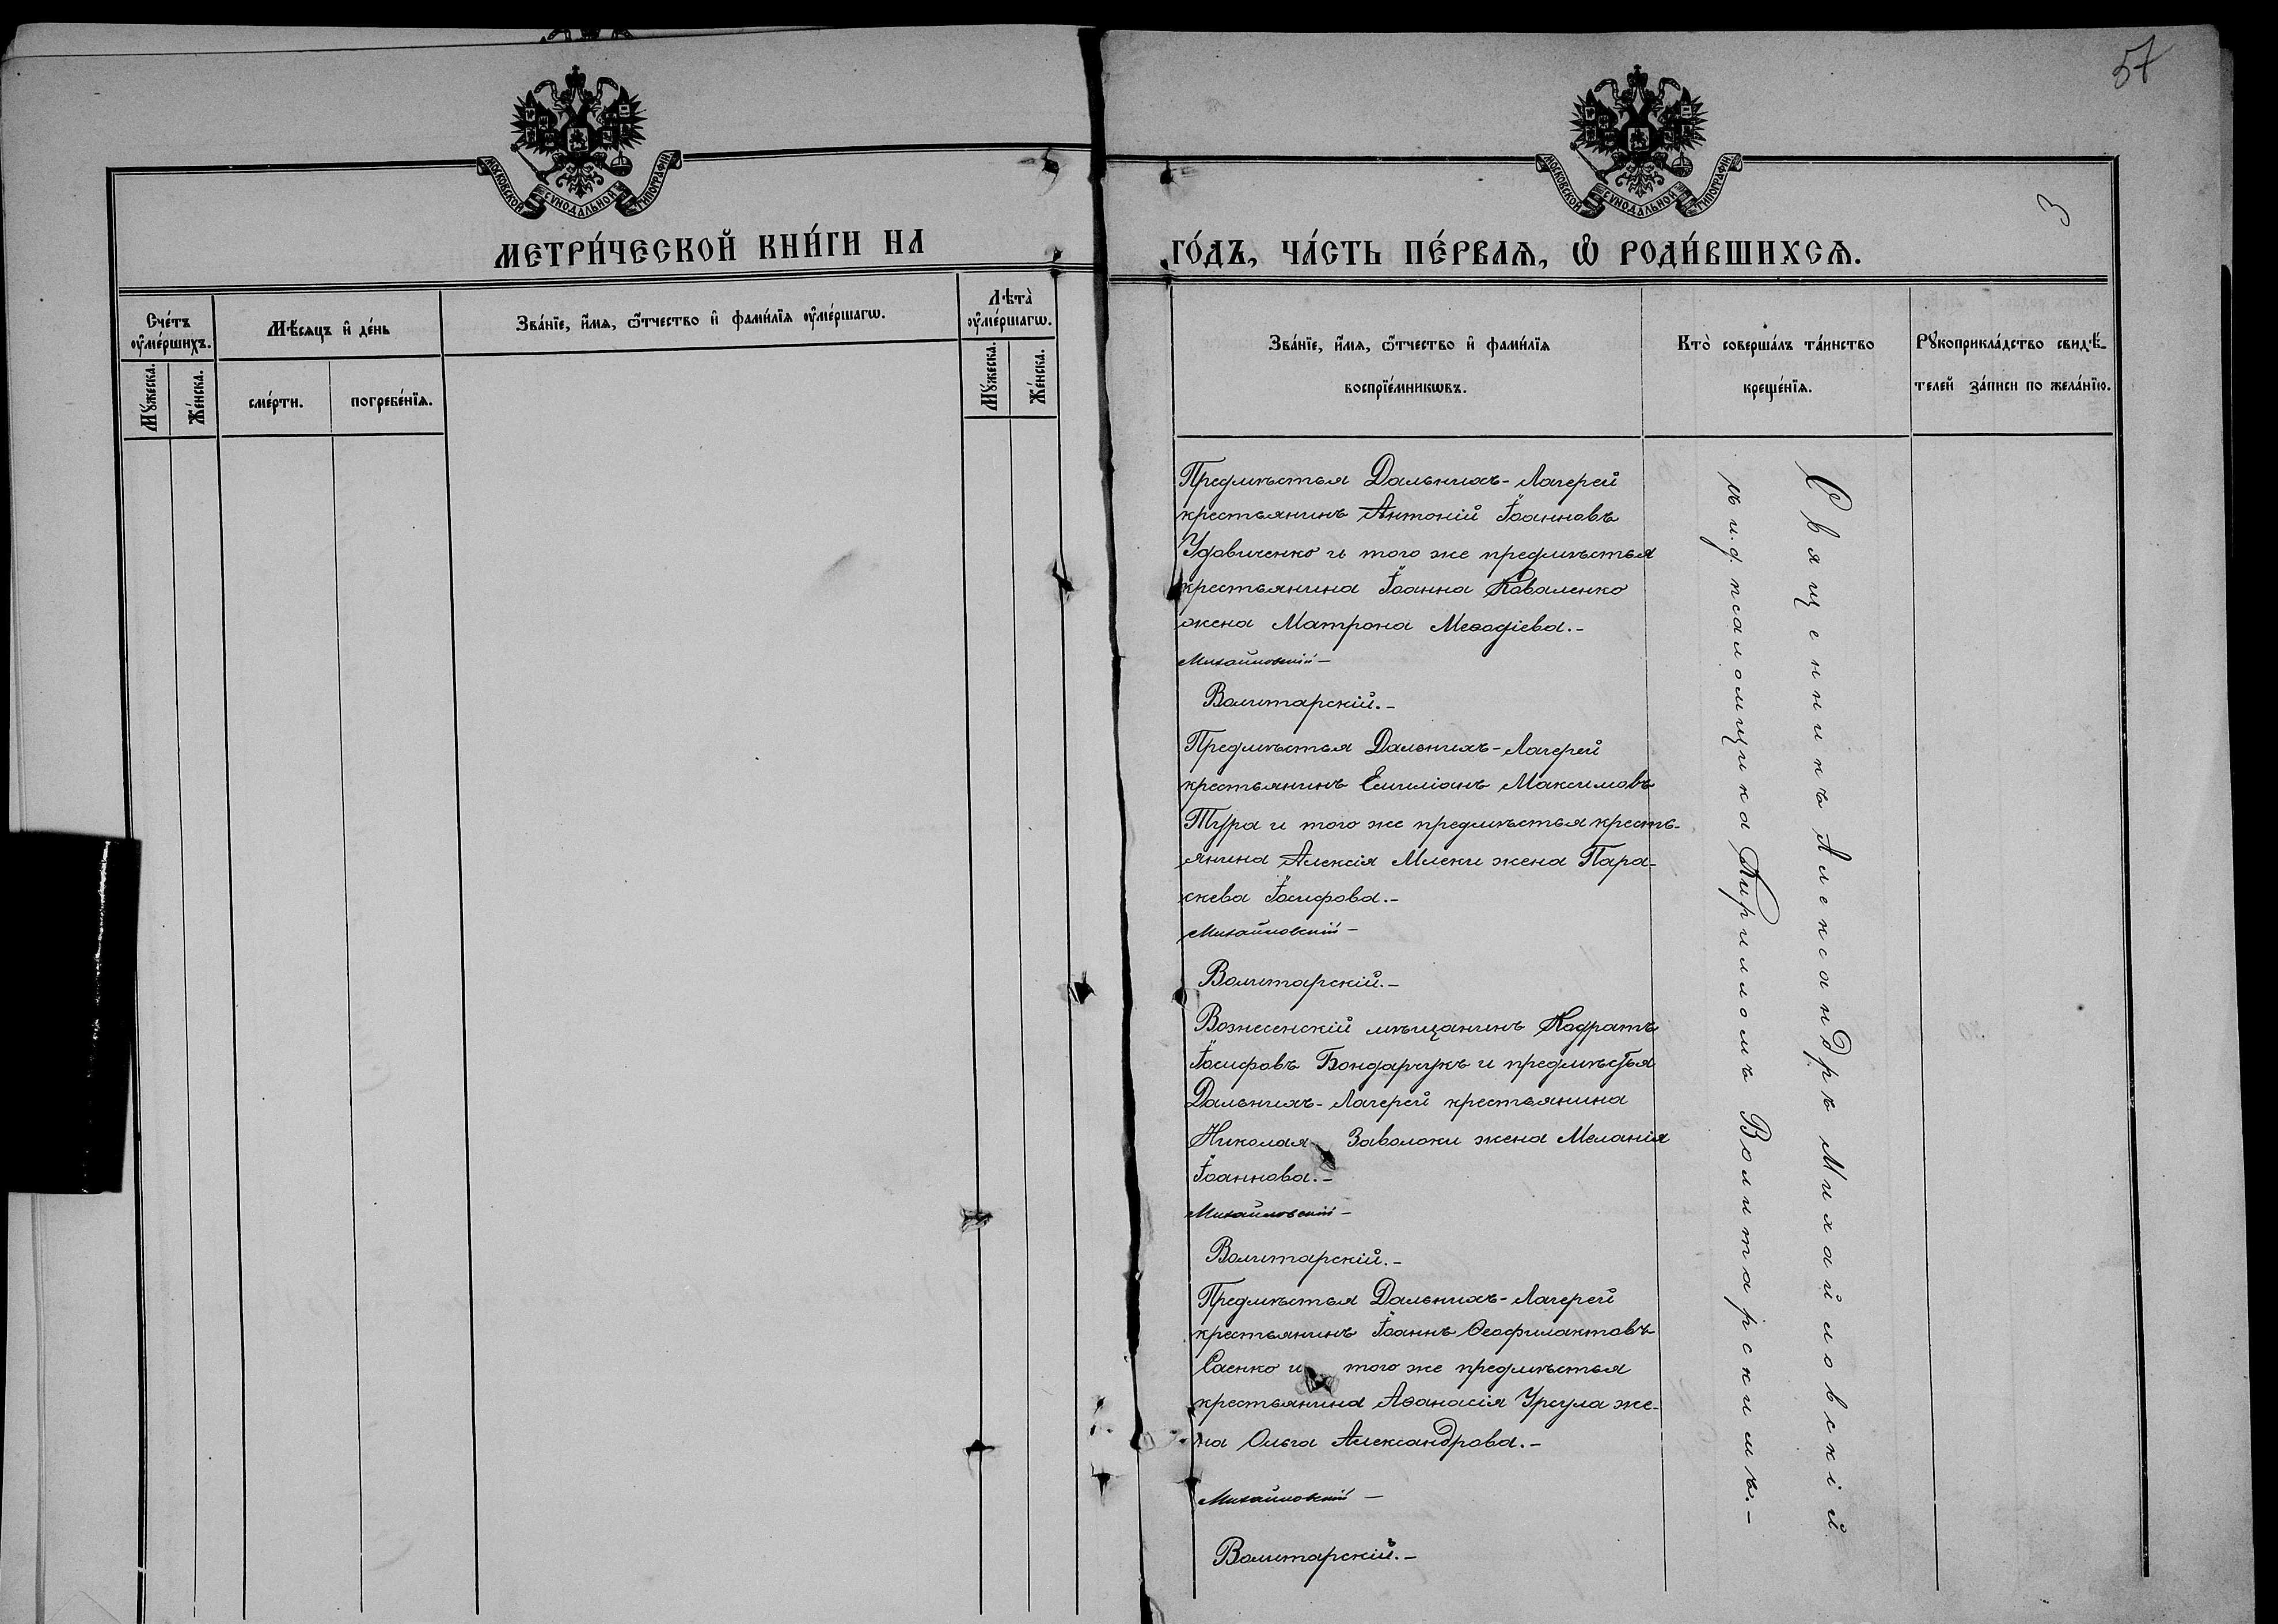 МОСКОВСКОЙ СѴНОДАЛЬНОЙ ТИПОГРАФІИ
МЕТРИ́ЧЕСКОЙ КНИ́ГИ НА
Сче́тъ ᲂу҆ме́ршихъ.
Мꙋ́жеска.
Же́нска.
Мѣ́сяцъ и҆ де́нь
сме́рти.
погребе́нїѧ.
Зва́нїе, и҆́мѧ, ѻ҆́тчество и҆ фами́лїѧ ᲂу҆ме́ршагѡ.
Лѣта̀
ᲂу҆ме́ршагѡ.
Мꙋ́жеска.
Же́нска.
57
МОСКОВСКОЙ СѴНОДАЛЬНОЙ ТИПОГРАФІИ
3
ГО́ДЪ, ЧА́СТЬ ПЕ́РВАѦ, Ѡ҆ РОДИ́ВШИХСѦ.
Зва́нїе, и҆́мѧ, ѻ҆́тчество и҆ фами́лїѧ
воспрїе́мникѡвъ.
Кто̀ соверша́лъ та́инство
креще́нїѧ.
Рꙋкоприкла́дство свидѣ́-
телей за́писи по жела́нїю.
Предмѣстья Дальнихъ-Лагерей
крестьянинъ Антоній Іоанновъ
Удовиченко и того же предмѣстья
крестьянина Іоанна Коваленко
жена Матрона Меѳодіева.-
Михайловскій-
Волитарскій.-
Предмѣстья Дальнихъ-Лагерей
крестьянинъ Емиліанъ Максимовъ
Тура и того же предмѣстья кресть-
янина Алексія Млеки жена Пара-
скева Іосифова.-
Михайловскій-
Волитарскій.-
Вознесенскій мѣщанинъ Кодратъ
Іосифовъ Бондарчукъ и предмѣстья
Дальнихъ-Лагерей крестьянина
Николая Заволоки жена Меланія
Іоаннова.-
Михайловскій-
Волитарскій.-
Предмѣстья Дальнихъ-Лагерей
крестьянинъ Іоаннъ Ѳеофилактовъ
Саенко и того же предмѣстья
крестьянина Аѳанасія Урсула же-
на Ольга Александрова.-
Михайловскій-
Волитарскій.-
Священникъ Александръ Михайловскій
съ и.д. псаломщика Кирилломъ Волитарскимъ.-